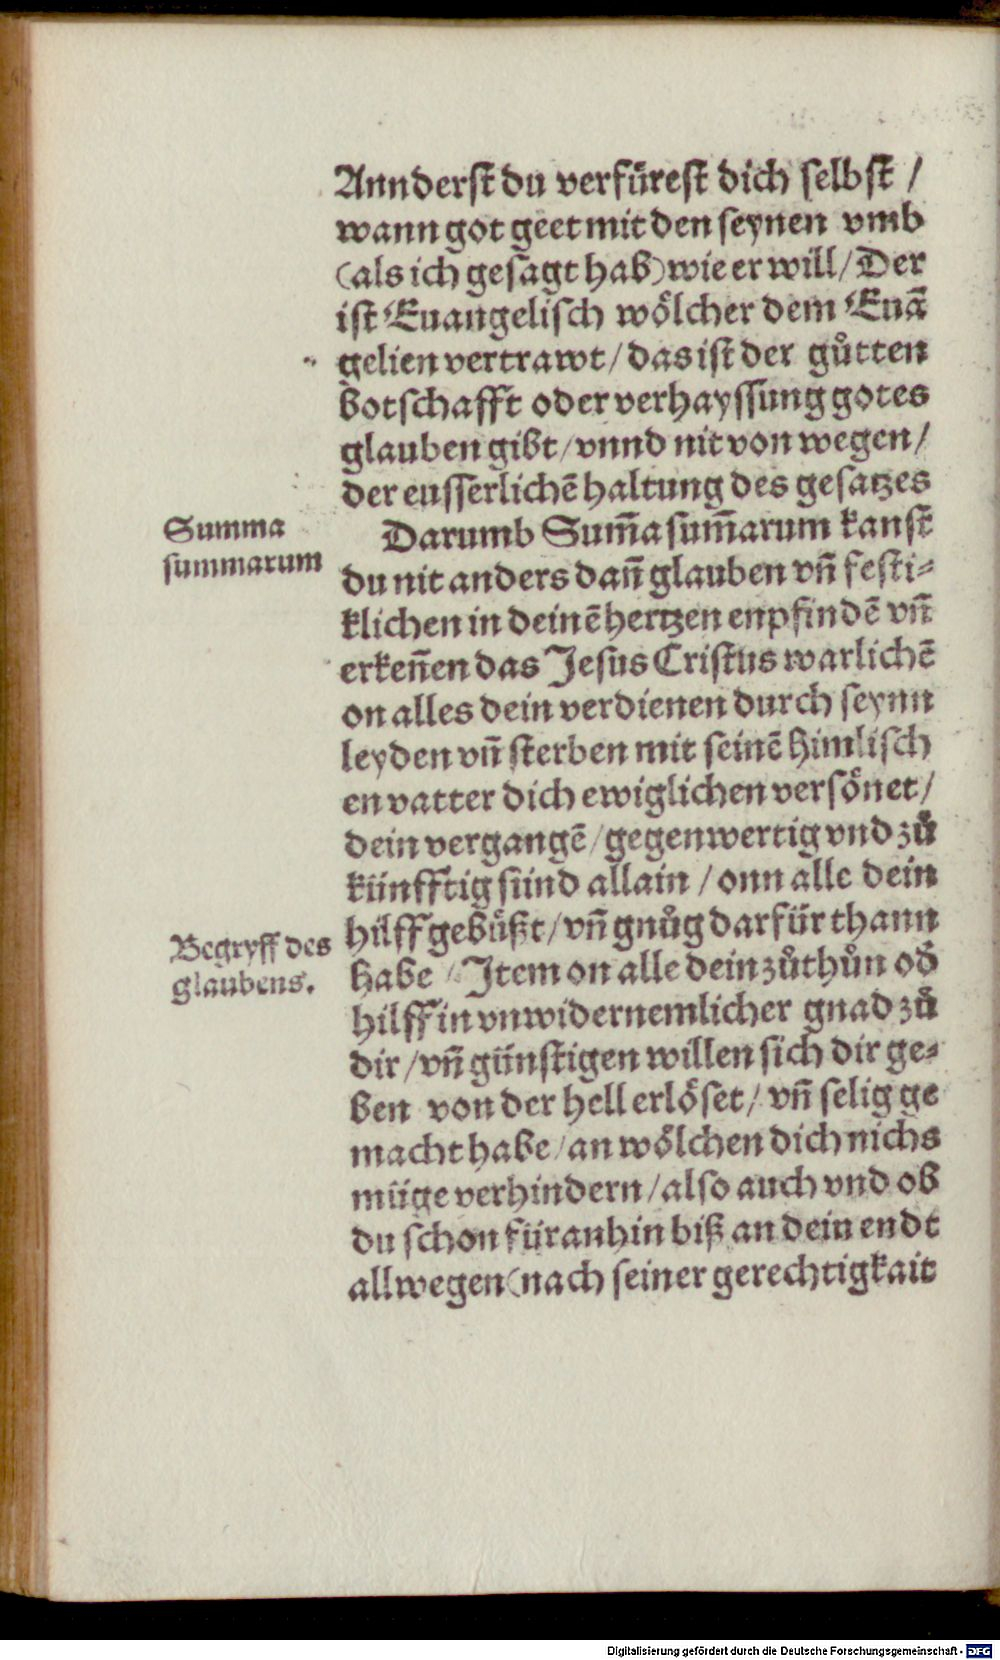 Annderst du verfürest dich selbst /
wann got geet mit den seynen vmb
(als ich gesagt hab) wie er will / Der
ist Euangelisch wölcher dem Euā
gelien vertrawt / das ist der gůtten
botschafft oder verhayssung gotes
glauben gibt / vnnd nit von wegen /
der eusserlichē haltung des gesatzes
Summa
summarum
Darumb Sum̄a sum̄arum kanst
du nit anders dan̄ glauben vn̄ festi-
klichen in deinē hertzen enpfindē vn̄
erken̄en das Jesus Cristus warlichē
on alles dein verdienen durch seynn
leyden vn̄ sterben mit seinē himlisch
en vatter dich ewiglichen versönet /
dein vergangē / gegenwertig vnd zů
künfftig sünd allain / onn alle dein
Begryff des
glaubens.
hilff gebüßt / vn̄ gnůg darfür thann
habe / Item on alle dein zůthůn od̄
hilff in vnwidernemlicher gnad zů
dir / vn̄ günstigen willen sich dir ge-
ben von der hell erlöset / vn̄ selig ge
macht habe / an wölchen dich nichs
müge verhindern / also auch vnd ob
du schon füranhin biß an dein endt
allwegen (nach seiner gerechtigkait
Digitalisierung gefördert durch die Deutsche Forschungsgemeinschaft - DFG